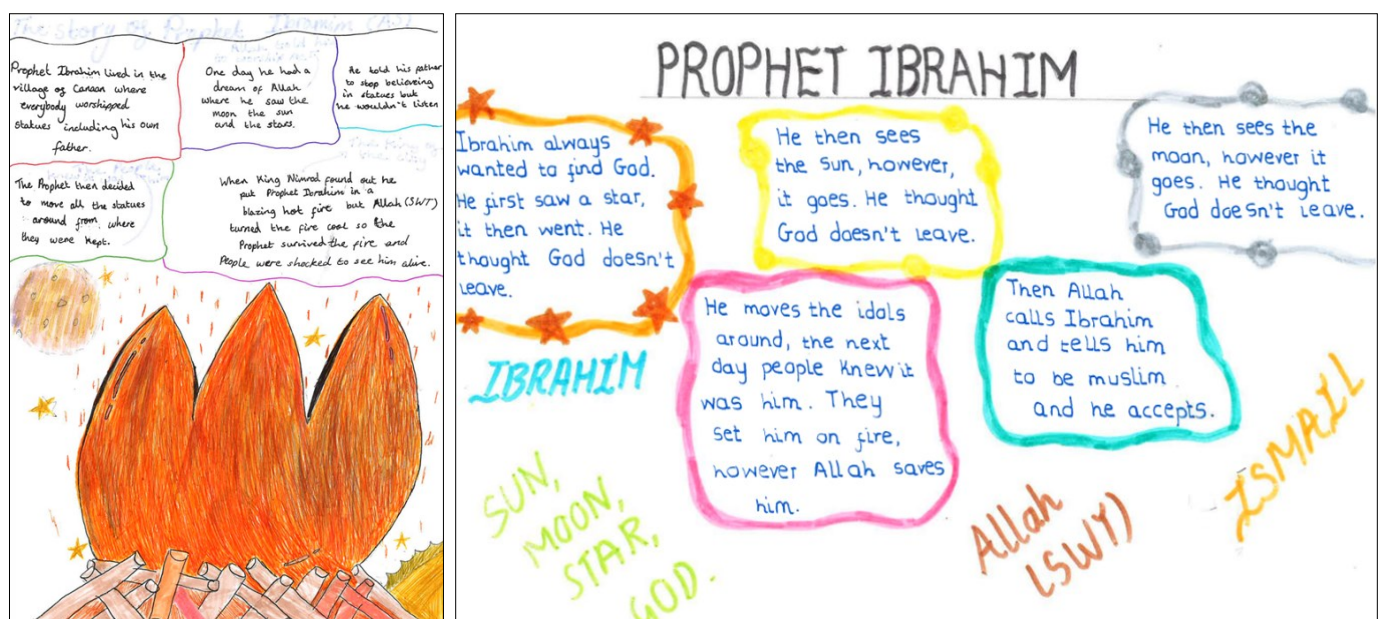 The story of Prophet Ibrahim (AS)
Prophet Ibrahim lived in the
village of Canaan where
everybody worshipped
statues including his own
father.
One day he had a
dream of Allah
where he saw the
moon the sun
and the stars.
He told his father
to stop believeing
in statues but
he wouldn't listen
The Prophet then decided
to move all the statues
around from where
they were kept.
When King Nimrod found out he
put Prophet Ibrahim in a
blazing hot fire but Allah (SWT)
turned the fire cool so the
Prophet survived the fire and
People were shocked to see him alive.
PROPHET IBRAHIM
Ibrahim always
wanted to find God.
He first saw a star,
it then went. He
thought God doesn't
leave.
He then sees
the sun, however,
it goes. He thought
God doesn't leave.
He then sees the
moon, however it
goes. He thought
God doesn't leave.
He moves the idols
around, the next
day people knew it
was him. They
set him on fire,
however Allah saves
him.
Then Allah
calls Ibrahim
and tells him
to be muslim
and he accepts.
IBRAHIM
SUN,
MOON,
STAR,
GOD.
Allah
(SWT)
ISMAIL